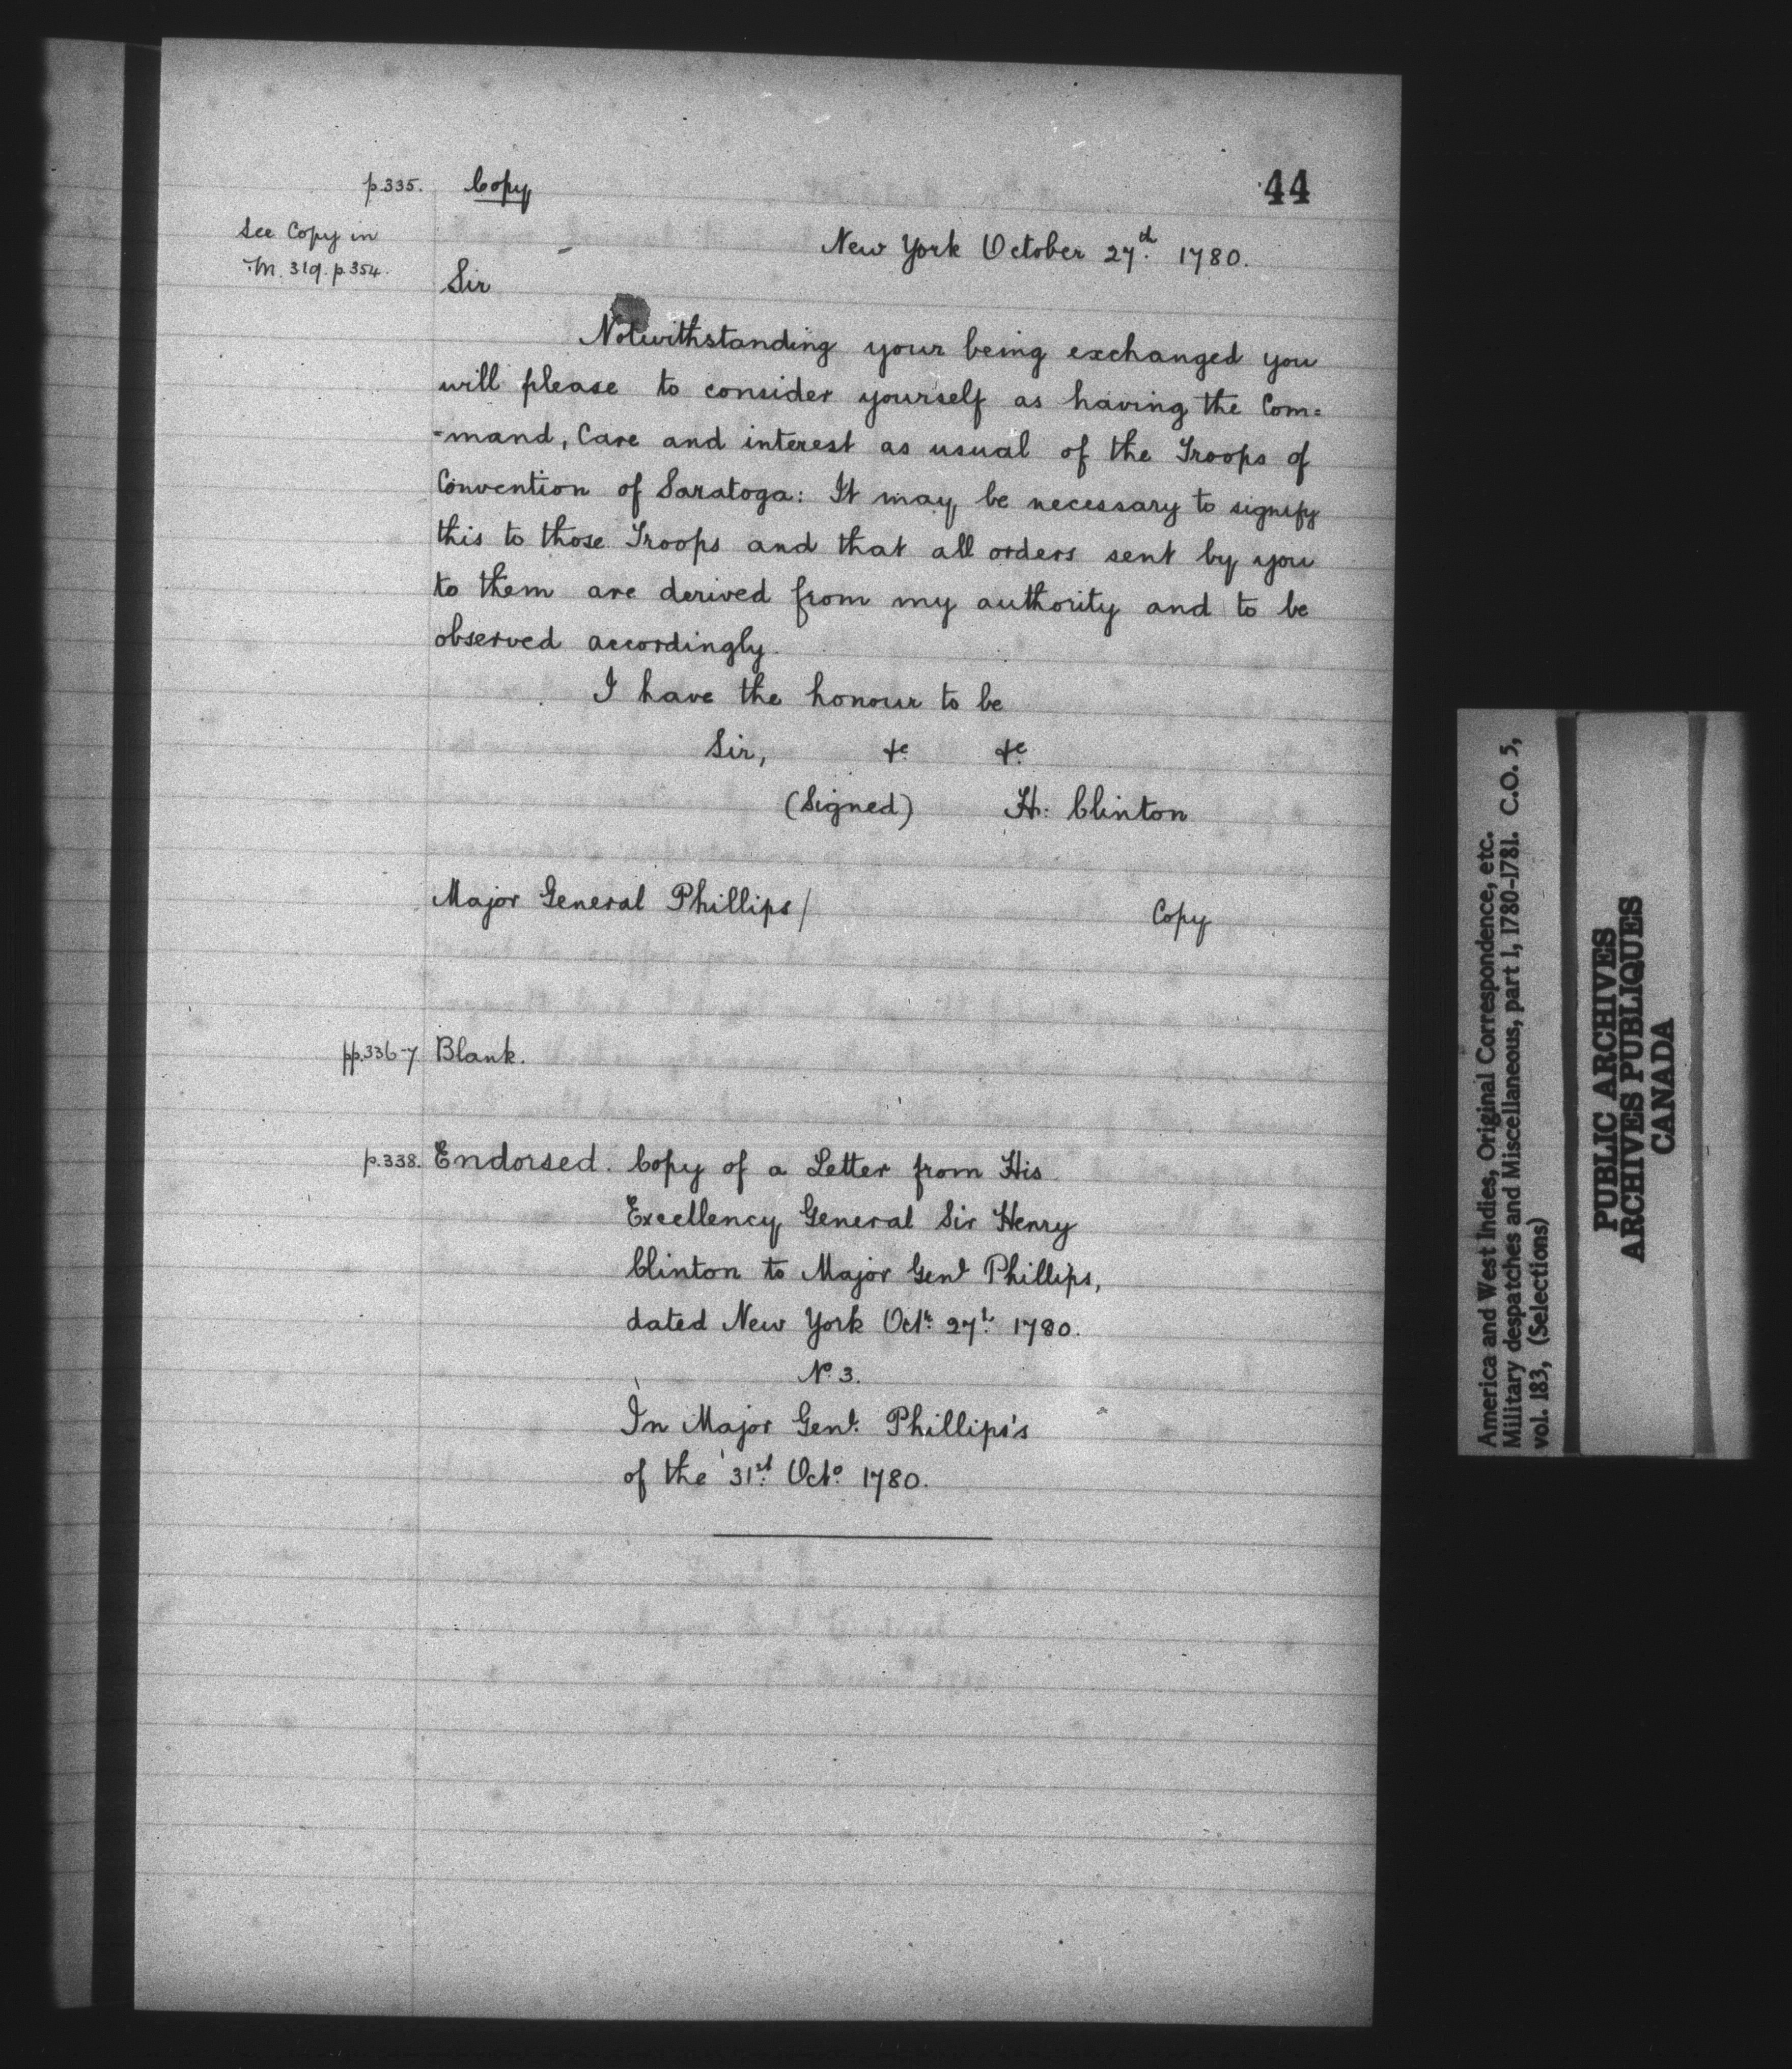 44
p.335. Copy
See Copy in
M. 319. p.354.
New York October 27th. 1780.
Sir
Notwithstanding your being exchanged you
will please to consider yourself as having the Com=
=mand, Care and interest as usual of the Troops of
Convention of Saratoga: It may be necessary to signify
this to those Troops and that all orders sent by you
to them are derived from my authority and to be
observed accordingly.
I have the honour to be
Sir, &c &c
(Signed) H: Clinton
Major General Phillips/
Copy
pp.336-7. Blank.
p.338. Endorsed. Copy of a Letter from His
Excellency General Sir Henry
Clinton to Major Genl Phillips,
dated New York Octr. 27th. 1780.
No. 3.
In Major Genl. Phillips's
of the 31st. Octo. 1780.
America and West Indies, Original Correspondence, etc.
Military despatches and Miscellaneous, part 1, 1780-1781. C.O. 5,
vol. 183, (Selections)
PUBLIC ARCHIVES
ARCHIVES PUBLIQUES
CANADA